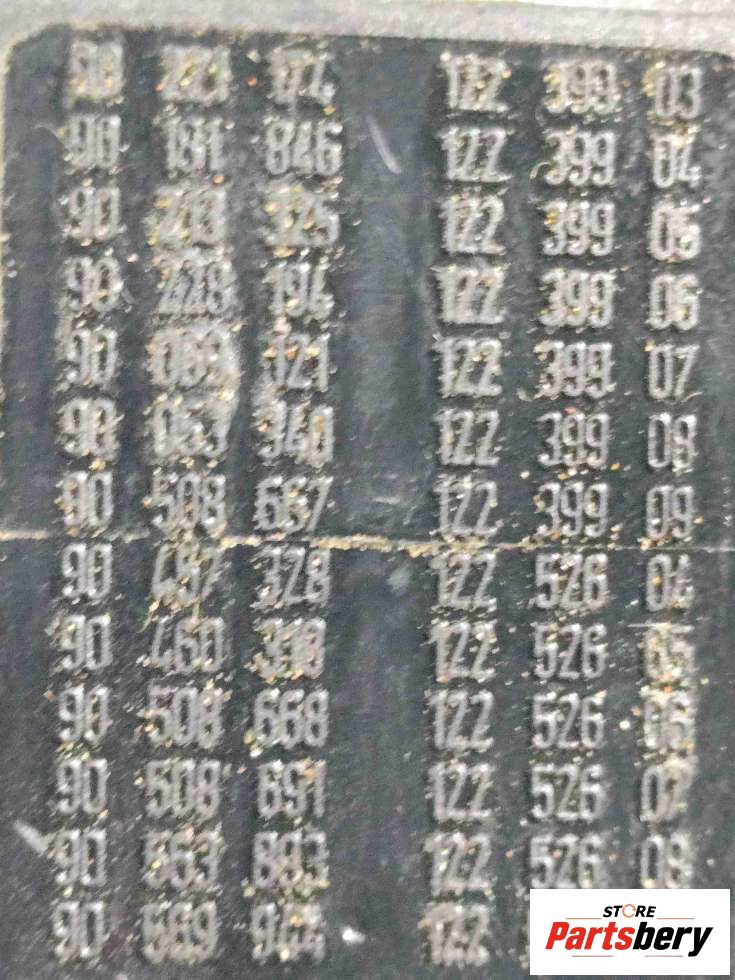 90 221 174 122 399 03
90 181 846 122 399 04
90 213 325 122 399 05
90 228 194 122 399 06
90 121 122 399 07
90 053 340 122 399 08
90 508 667 122 399 09
90 487 328 122 526 04
90 460 310 122 526 05
90 508 668 122 526 06
90 508 691 122 526 07
90 563 893 122 526 08
90 122
STORE
Partsbery